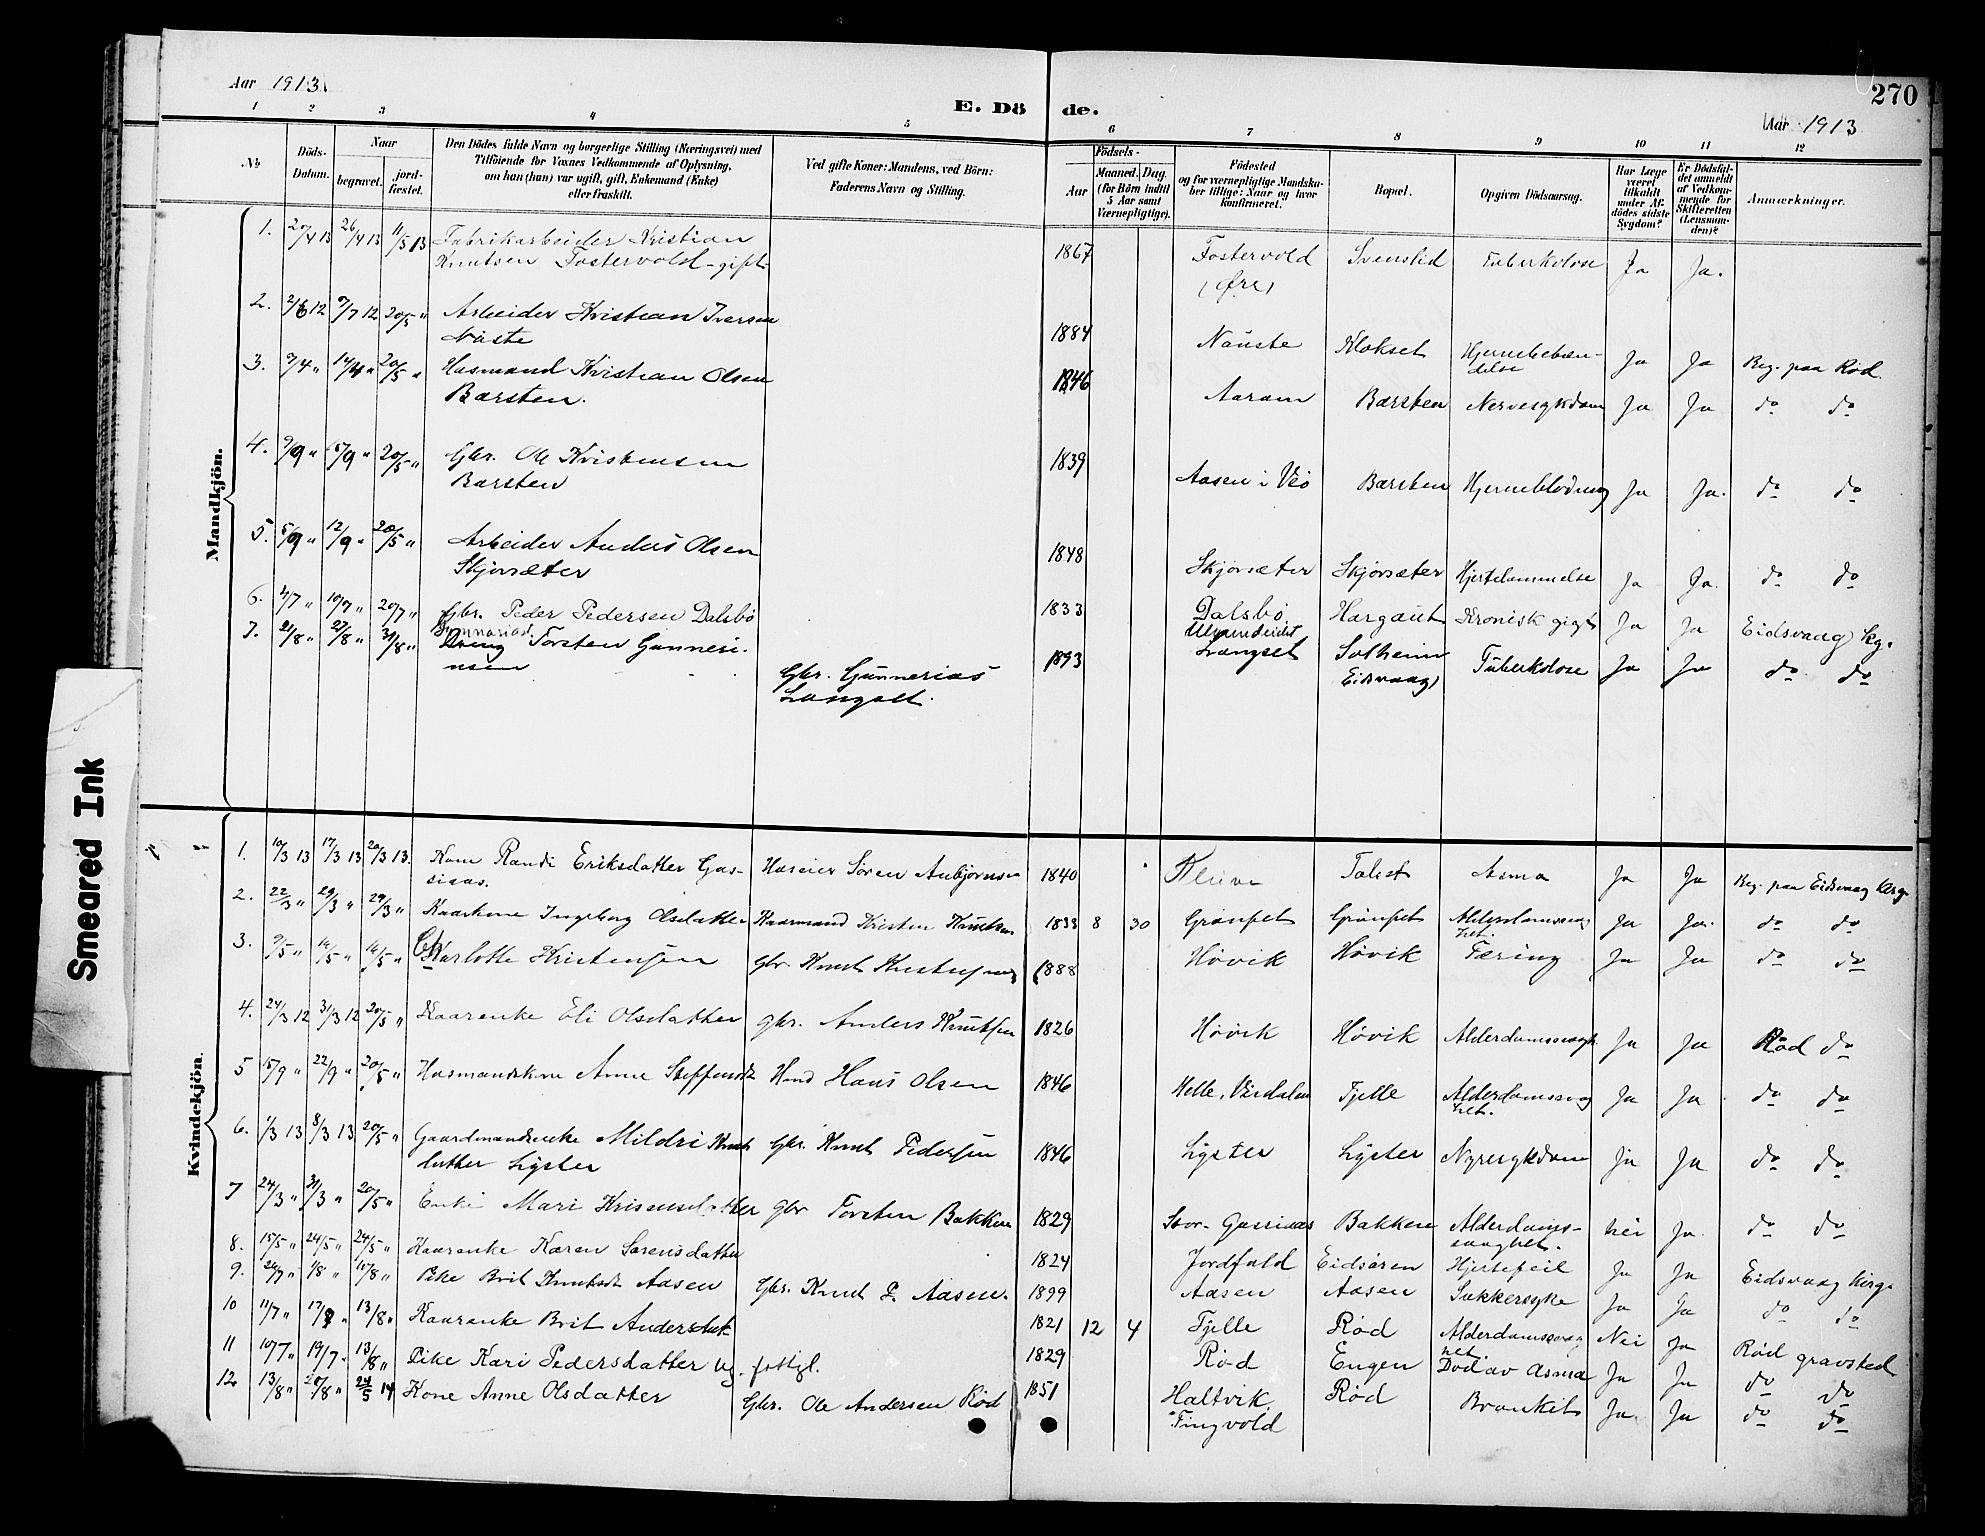 Aar 1913
E. Dö de.
270
Aar 1913
1 2 3 4 5 6 7 8 9 10 11 12
No
Döds-Datum.
Naar
begravet.
jordfæstet.
Den Dödes fulde Navn og borgerlige Stilling (Næringsvei) med
Tilföiende for Voxnes Vedkommende af Oplysning,
om han (hun) var ugift, gift, Enkemand (Enke)
eller fraskilt.
Ved gifte Koner: Mandens, ved Börn:
Faderens Navn og Stilling.
Födsels-
Aar
Maaned. Dag.
(for Börn indtil
5 Aar samt
Værnepligtige).
Födested
og for værnepligtige Mandska-
ber tillige: Naar og hvor
konfirmeret.
Bopæl.
Opgiven Dödsaarsag.
Har Læge
været
tilkaldt
under Af-
dödes sidste
Sygdom?
Er Dödsfal-
det anmeldt
af Vedkom-
mende for
Skifteretten
(Lensman-
den)?
Anmærkninger.
Mandkjön.
1. 20/4 13 26/4 13 11/5 13 Fabrikarbeider Kristian 1867 Fostervold Svenslid Tuberkolose Ja Ja.
Knutsen Fostervold - gift (Øre)
2. 2/6 12 9/7 12 20/5 " Arbeider Kristian Iversen 1884 Nauste Klokset Hjernebetæn- Ja Ja Beg. paa Rød.
Nauste delse
3. 9/4 " 14/4 " 20/5 " Husmand Kristian Olsen 1846 Aaram Barsten Nervesykdom Ja Ja do do
Barsten.
4. 9/9 " 15/9 " 20/5 " Gbr. Ole Kristensen 1839 Aasen i Veö Barsten Hjerneblødning Ja Ja. do do
Barsten
5. 5/9 " 12/9 " 20/5 " Arbeider Anders Olsen 1848 Skjørsæter Skjørsæter Hjertelammelse Ja Ja. do do
Skjørsæter
6. 4/7 " 10/7 " 20/7 " Gbr. Peder Pedersen Dalsbø 1833 Dalsbø Hargaut Kronisk gigt Ja Ja Eidsvaag kg.
7. 21/8 " 27/8 " 31/8 " Dreng Torsten Gunneri- 1893 Langset Solheim Tuberkolose Ja Ja do do
nsen Gbr. Gunnerius Eidsvaag)
Langset.
Kvindekjön.
1. 10/3 13 17/3 13 20/3 13. Kone Randi Eriksdatter Gus- Huseier Søren Anbjørnsen 1840 Kleive Talset Asma Ja Ja Beg. paa Eidsvaag kirg
siaas.
2. 22/3 " 29/3 " 29/3 " Kaarkone Ingeborg Olsdatter Kaarmand Kristen Knutsen 1838 8 30 Grønset Grønset Alderdomssvag Ja Ja. do do
het.
3. 9/5 " 16/5 " 16/5 " Karlotte Kristensen gbr. Knut 1888 Høvik Høvik Tæring Ja Ja do do
4. 24/3 12 31/3 12 20/5 " Kaarenke Eli Olsdatter gbr. Anders Knutsen 1826 Høvik Høvik Alderdomssvagh. Ja Ja Rød do
5 15/9 " 22/9 " 20/5 " Husmandskone Anne Steffensdt Hmd Hans Olsen 1846 Helle, Virdalen Tjelle Alderdomssvag Ja Ja do do
het.
6. 1/3 13 8/3 13 20/5 " Gaardmandsenke Mildri Knuts Gbr. Knut Pedersen 1846 Ligster Ligster Nyresykdom Ja Ja do do
datter Ligster
7 24/3 " 31/3 " 20/5 " Enke Mari Kristensdatter gbr Torsten Bakken 1829 Stor-Gusiaas Bakken Alderdoms- nei Ja do do
svaghet.
8. 15/5 " 24/5 " 24/5 " Kaarenke Karen Sørensdatter 1824 Jordfald Eidsøren Hjertefeil Ja Ja Eidsvaag kirg
9. 26/7 " 1/8 " 10/8 " Pike Brit Knutsdt Aasen Gbr. Knut P. Aasen. 1899 Aasen Aasen Sukkersyke Ja Ja do do
10 11/7 " 17/7 " 13/8 " Kaarenke Brit Andersdat 1821 12 4 Tjelle Rød Alderdomssvag Nei Ja Rød gravsted
het
11 10/7 " 19/7 " 13/8 " Pike Kari Pedersdatter ug. fattigl. 1829 Rød Engen Död av Asma Ja Ja do do
12 13/8 " 20/8 " 24/5 14 Kone Anne Olsdatter Gbr. Ole Andersen Rød 1851 Haltvik Rød Bronkit Ja. Ja do do
Tingvold
Smeared Ink